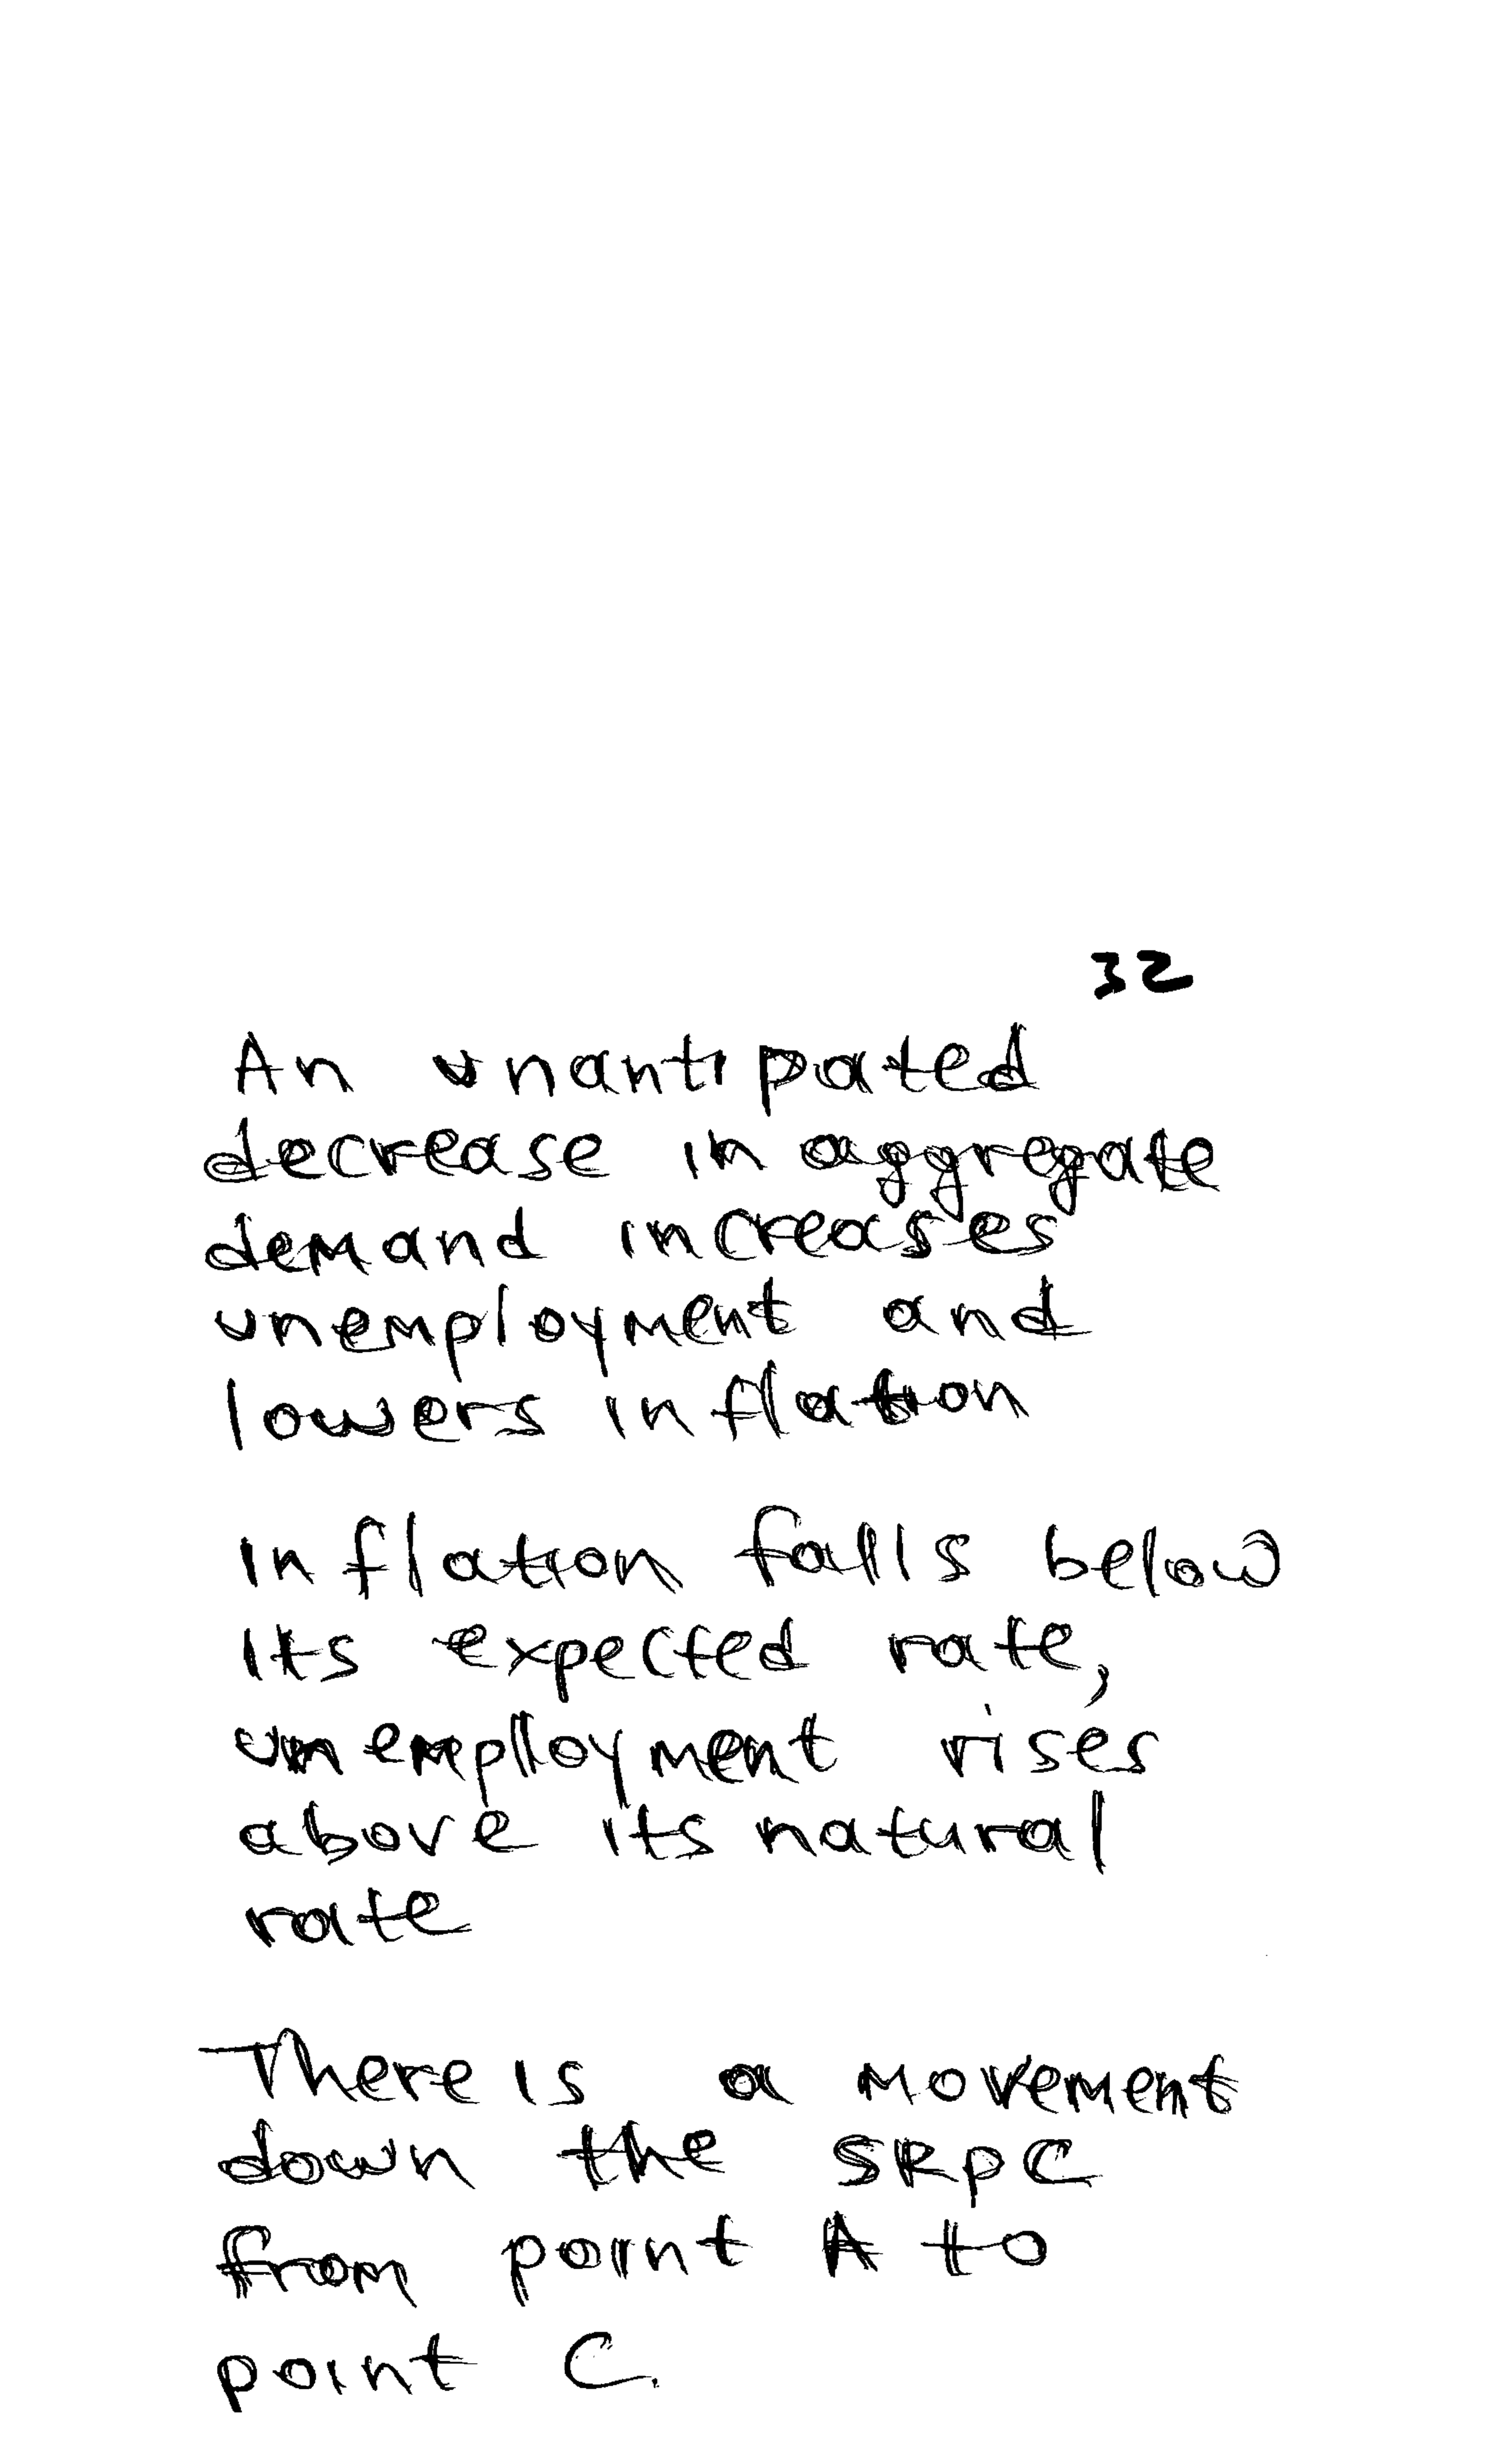 32
An unantipated
decrease in aggregate
demand increases
unemployment and
lowers inflation
inflation falls below
its expected rate,
unemployment rises
above its natural
rate
There is a movement
down the SRPC
from point A to
point C.